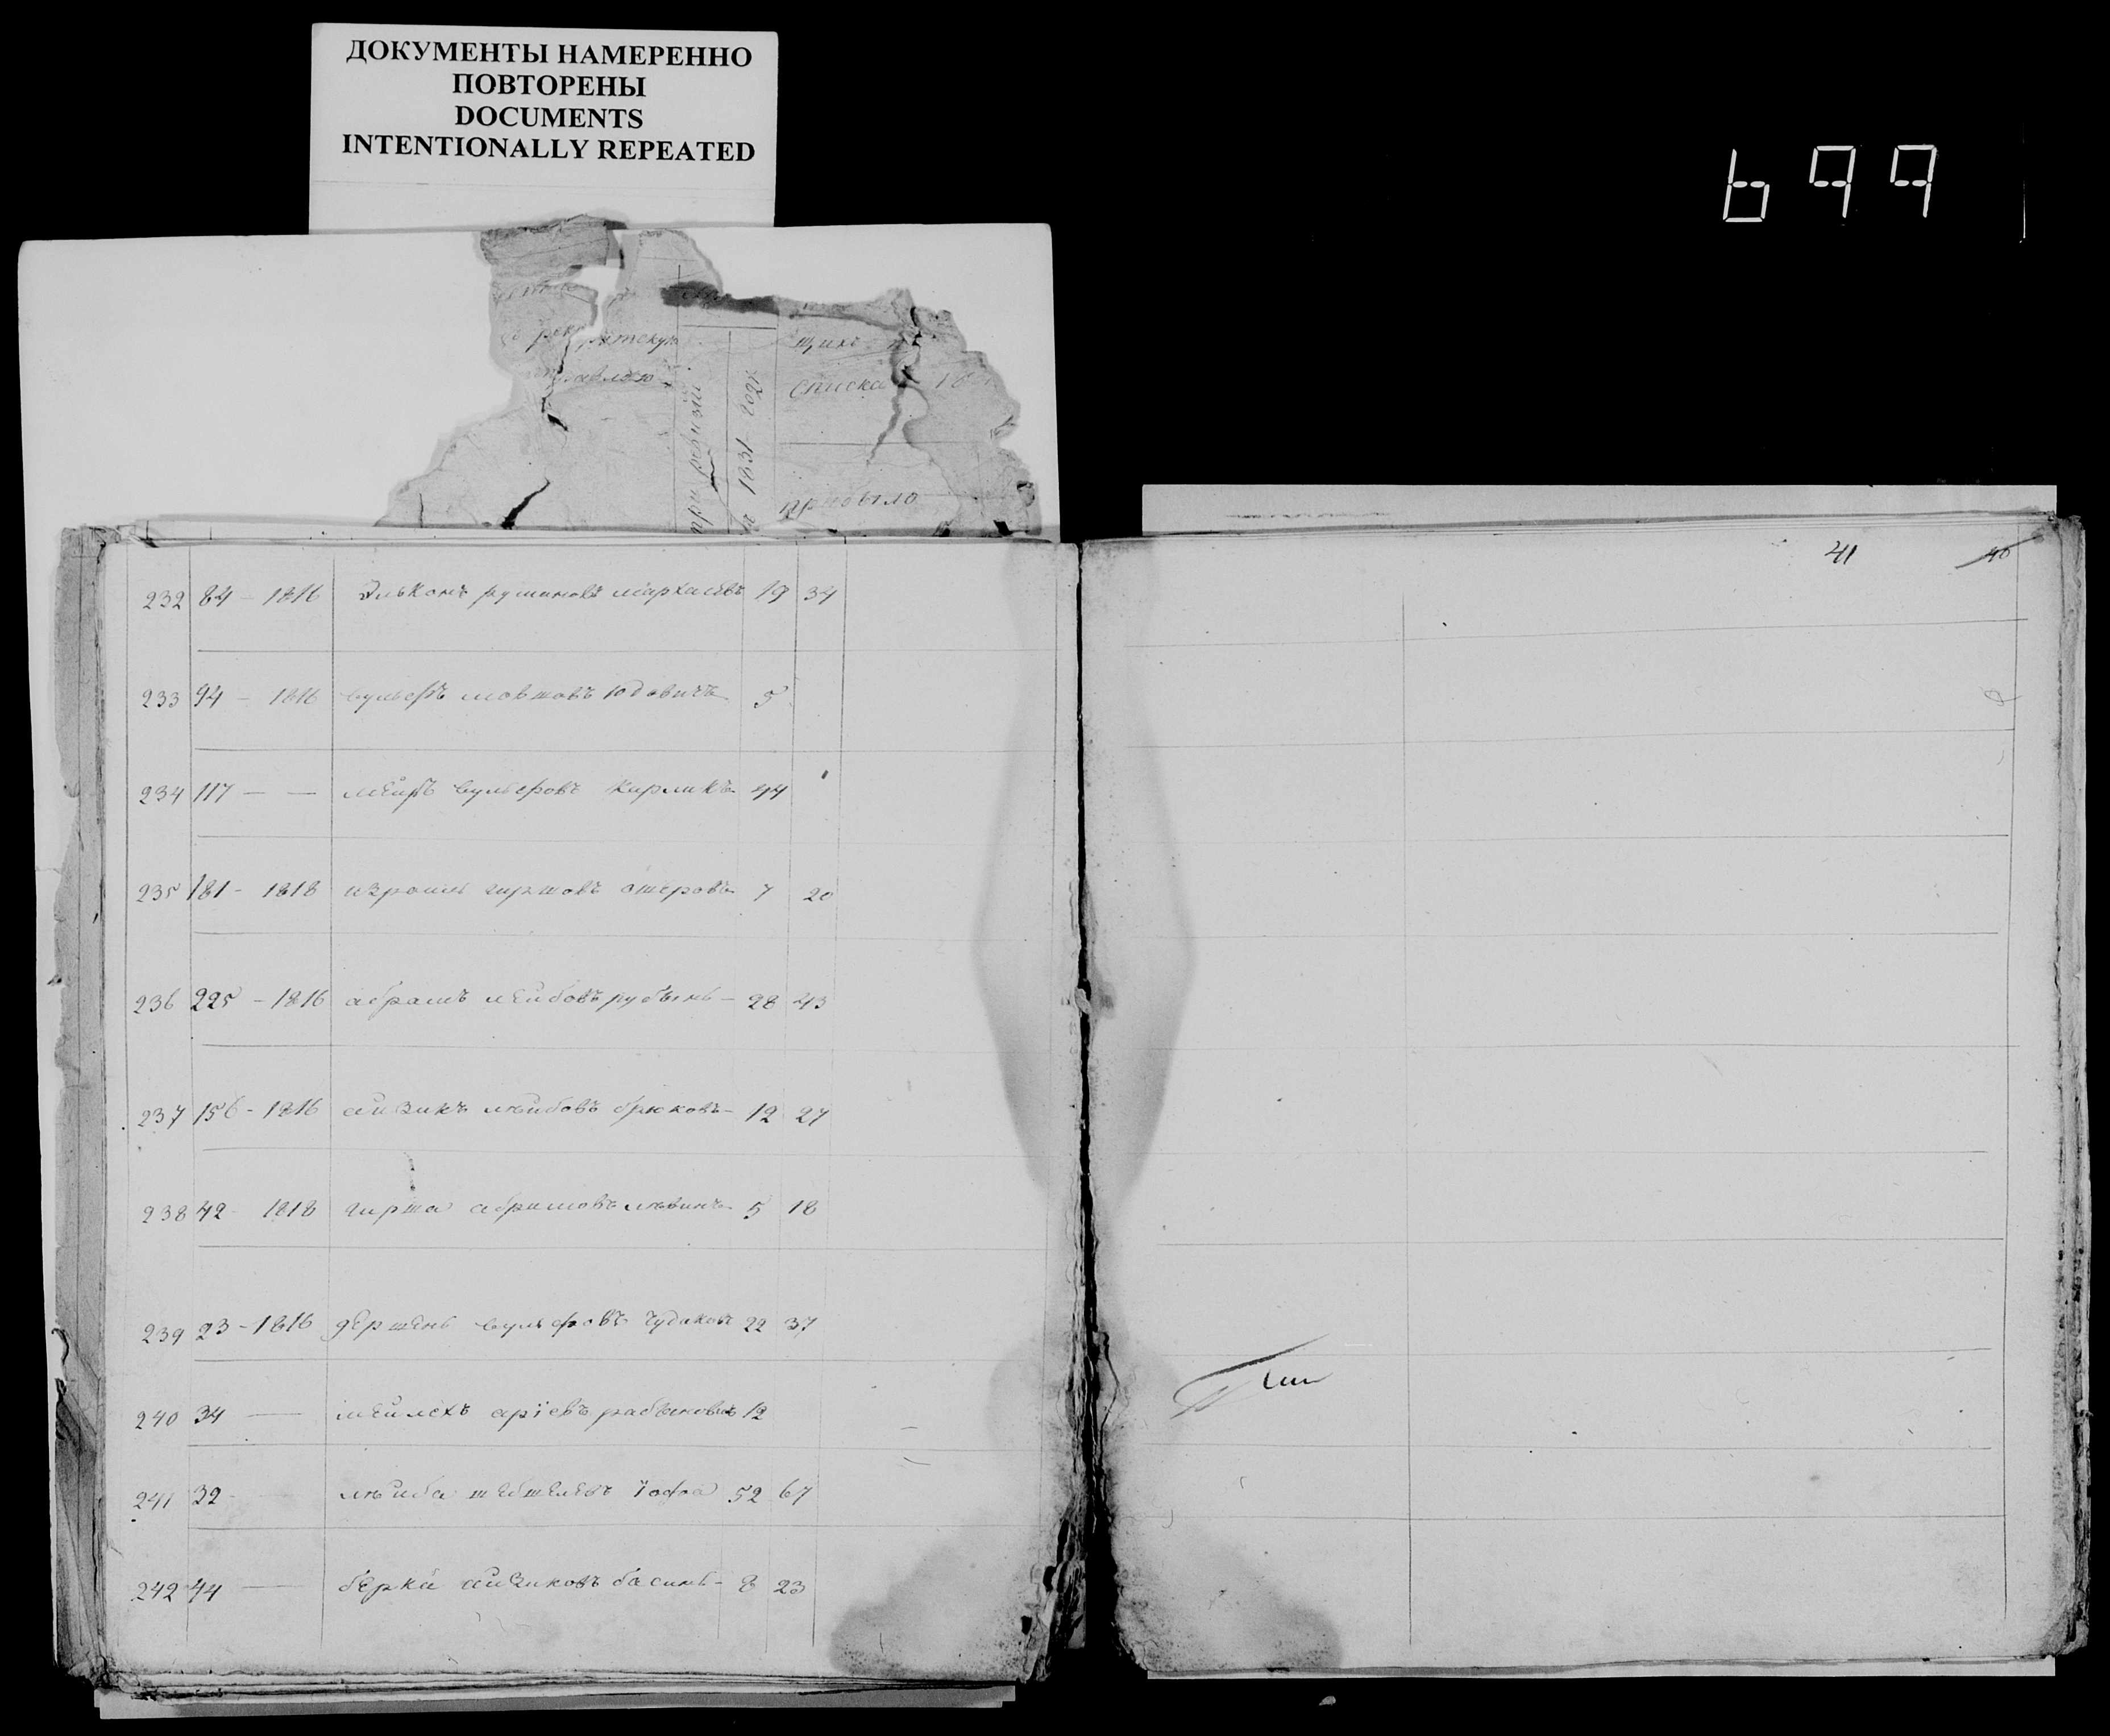 ДОКУМЕНТЫ НАМЕРЕННО
ПОВТОРЕНЫ
DOCUMENTS
INTENTIONALLY REPEATED
699
списка
при ревизіи
1831 года
прибыло
41 40
232 84 - 1816 Эльконъ 19 34
233 94 - 1816 вульфъ мовшовъ Юдовичъ 5
234 117 — — меиръ вульфовъ Кирликъ 44
235 181 - 1818 израиль гиршовъ ошеровъ 7 20
236 225 - 1816 абрамъ лейбовъ рубинъ - 28 43
237 156 - 1816 айзикъ лѣйбовъ брюковъ - 12 27
238 42 - 1818 гирша абрамовъ лѣвинъ 5 18
239 23 - 1816 гершень вульфовъ 22 37
240 34 — мейлехъ аріевъ рабиновичъ 12
241 32 - лѣйба шевшелевъ Іофа 52 67
242 44 — берка айзиковъ басинъ - 8 23